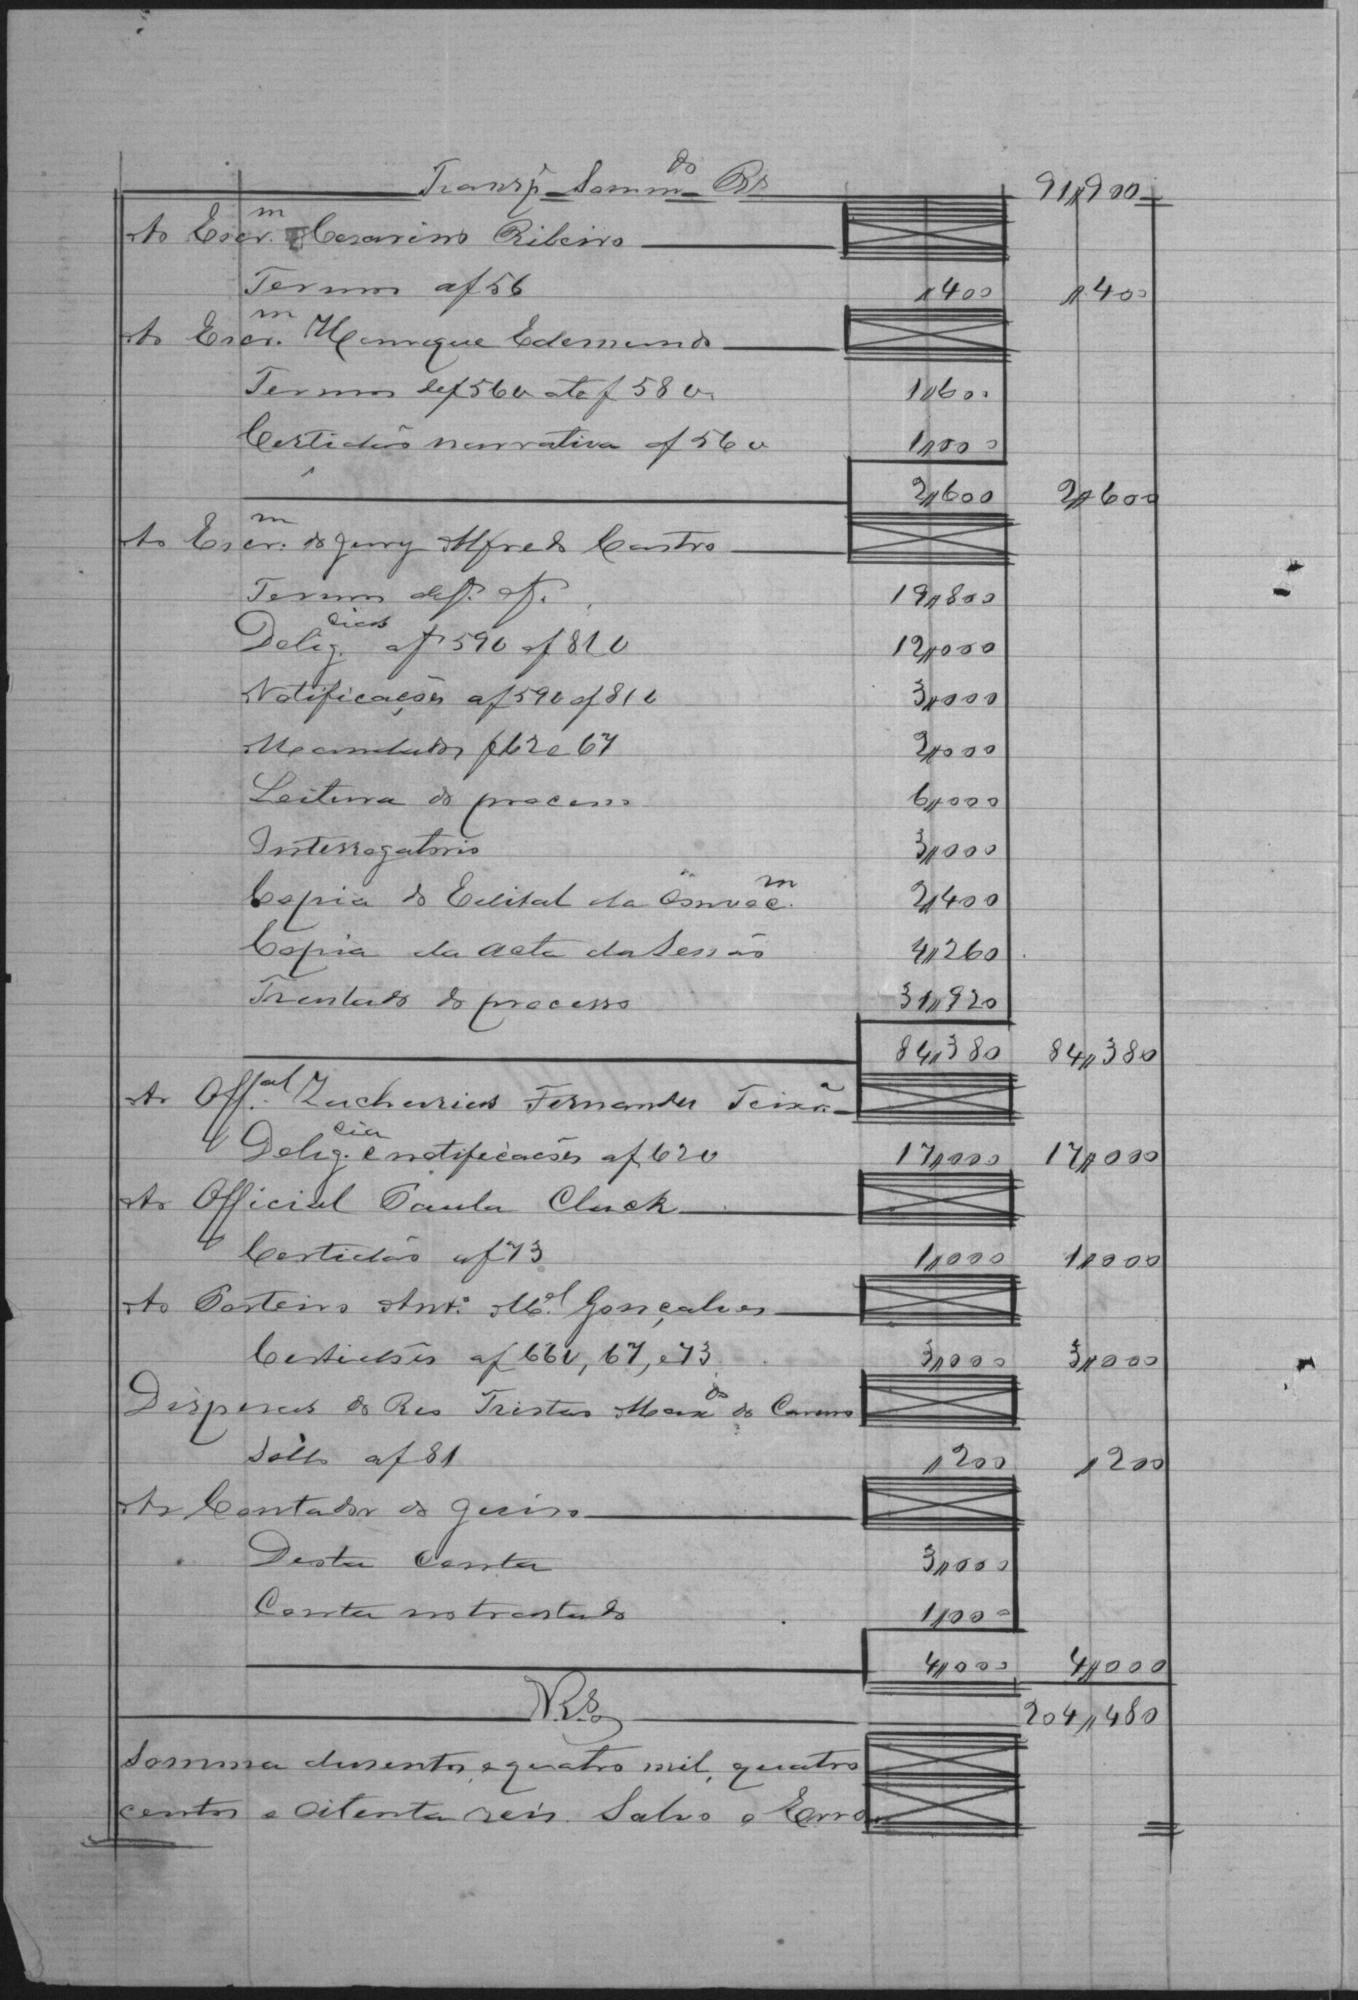 Transp. Sommdo Rs 91,,900
Ao Escrm. Cesarino Ribeiro
Termos af 56 ,,400 ,,400
Ao Escrm. Henrique Edemundo
Termos def 56v ate f 58v 1,,600
Certidão narrativa af 56v 1,,000
2,,600 2,,600
Ao Escrm. do jury Alfredo Castro
Termos def. af. 19,,800
Deligcias. af 59v af 81v 12,,000
Notificações af 59v af 81v 3,,000
Mandados f 62 e 67 2,,000
Leitura do processo 6,,000
Interrogatorio 3,,000
Copia do Edital da Convocm. 2,,400
Copia da acta da Sessão 4,,260
Traslado do processo 31,,920
84,,380 84,,380
Ao Offal. Zacharias Fernandes Teixra
Deligcia. e notificações af 62v 17,,000 17,,000
Ao Official Paula Cluck
Certidão af 73 1,,000 1,,000
Ao Porteiro Anto. Mel. Gonçalves
Certidões af 66v, 67, e 73 3,,000 3,,000
Despesas do Reo Tristão do Carmo
Sello af 81 ,,200 ,,200
Ao Contador do juizo
Desta conta 3,,000
Conta no traslado 1,,000
4,,000 4,,000
Rs 204,,480
Somma dusentos e quatro mil, quatro
centos e oitenta reis. Salvo o Erro.